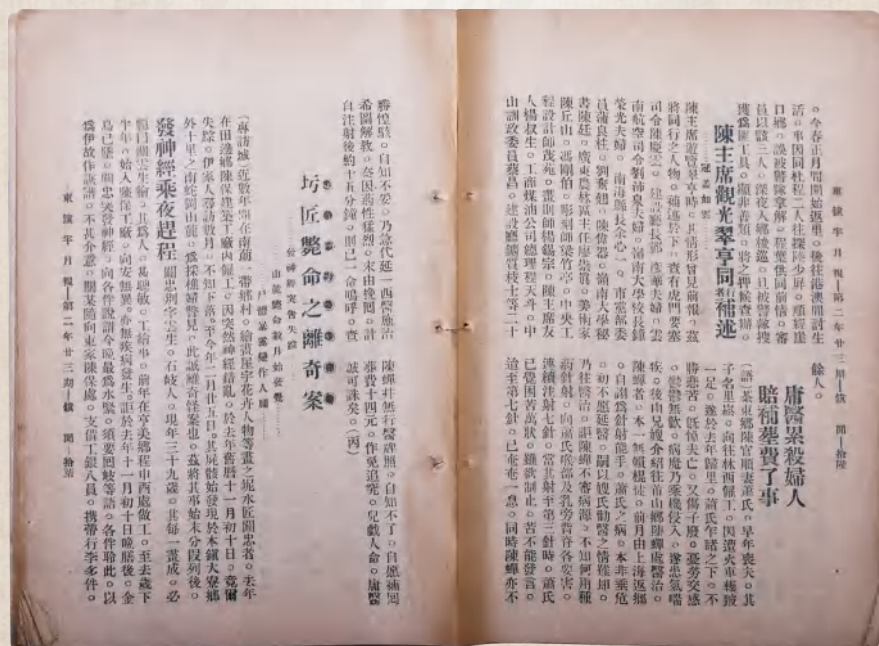 東鎮半月報—第二年廿三期—鎮 聞—拾陸
。今春正月間開始返里。後往港澳間討生
活。事因同杜程二人往探陸少屏。道經崖
口鄉。誤被警隊拿解。程葉供同前情。審
員以該三人。深夜入鄉梭巡。且被警隊搜
獲為匪工具。顯非善類。將之押候查辦。
陳主席觀光翠亨同行者補述
冠蓋如雲
陳主席遊覽翠亨時。其情形曾見前報。茲
將同行之人物。補述於下。查有虎門要塞
司令陳慶雲。建設廳長鄧彥華夫婦。雲
南航空司令劉沛泉夫婦。嶺南大學校長鍾
榮光夫婦。南海縣長余心一。市黨部委
員蒲良柱。劉奮翹。陳偉器。嶺南大學秘
書陳廷。廣東農林區主任廖崇真。美術家
陳丘山。馮剛伯。彫刻師梁竹亭。中央工
程設計師茂苑。畫則師楊錫宗。陳主席友
人楊叔生。工商煤油公司總理程天斗。中
山訓政委員蔡昌。建設廳鑛質技士等二十
餘人。
庸醫累殺婦人
賠補墓費了事
(語)茶東鄉陳官順妻蕭氏。早年喪夫。其
子名里嵩。向往林西傭工。因遭火車棧跛
一足。遂於去年歸里。蕭氏乍睹之下。不
勝悲苦。既悼夫亡。又傷子廢。憂勞交感
。悒鬱無歡。病魔乃乘機侵入。遂患氣喘
疾。後由兄嫂介紹往首山鄉陳蟬處醫治。
陳蟬者。本一無賴棍徒。前月由上海返鄉
。自詡為針射能手。蕭氏之病。本非垂危
。初不愿延醫。嗣以嫂氏勸醫之情難却。
乃往醫治。詎陳蟬不審病源。不知何用種
葯針射。向蕭氏喉部及乳旁背脊各要害。
連續注射七針。當其射至第三針時。蕭氏
已覺困苦萬狀。雖欲制止。苦不能發言。
迨至第七針。已奄奄一息。同時陳蟬亦不
勝惶駭。自知不妥。乃急代延一西醫施治
希圖解救。奈因葯性猛烈。末由挽囘。計
自注射後約十五分鐘。則已一命嗚呼。查
陳蟬并無行醫牌照。自知不了。自愿補囘
葬費十四元。作免追究。兒戲人命。庸醫
誠可誅矣。(丙)
圬匠斃命之離奇案
發神經突告失踪
山蛇斃命數月始發覺
尸體暴露變作人腊
(專訪城)近數年間在南朗一帶鄉村。繪畫屋宇花卉人物等畫之坭水匠關忠者。去年
在田邊鄉陳保建築工廠內傭工。因突然神經錯亂。於去年舊曆十一月初十日。竟爾
失踪。伊家人尋訪數月。不知下落。至今年二月廿五日。其屍骸始發現於本鎮大寮鄉
外十里之南蛇岡山麓。為採樵婦瞥見。此誠離奇怪案也。茲將其事始末分段列後。
發神經乘夜趕程 關忠別字雲生。石岐人。現年三十九歲。其每一畫成。必
題曰關雲生繪。其為人。甚聰敏。工繪事。前年在亨美鄉程山西處做工。至去歲下
半年。始入陳保工廠。向安無異。亦無疾病發生。詎於去年十一月初十日晚膳後。金
烏已墜。關忠突發神經。向各伴說謂今晚最為水緊。須要囘岐等語。各伴聆此。以
為伊故作詼諧。不甚介意。關某隨向東家陳保處。支借工銀八員。携帶行李多件。
東鎮半月報—第二年廿三期—鎮 聞—拾柒